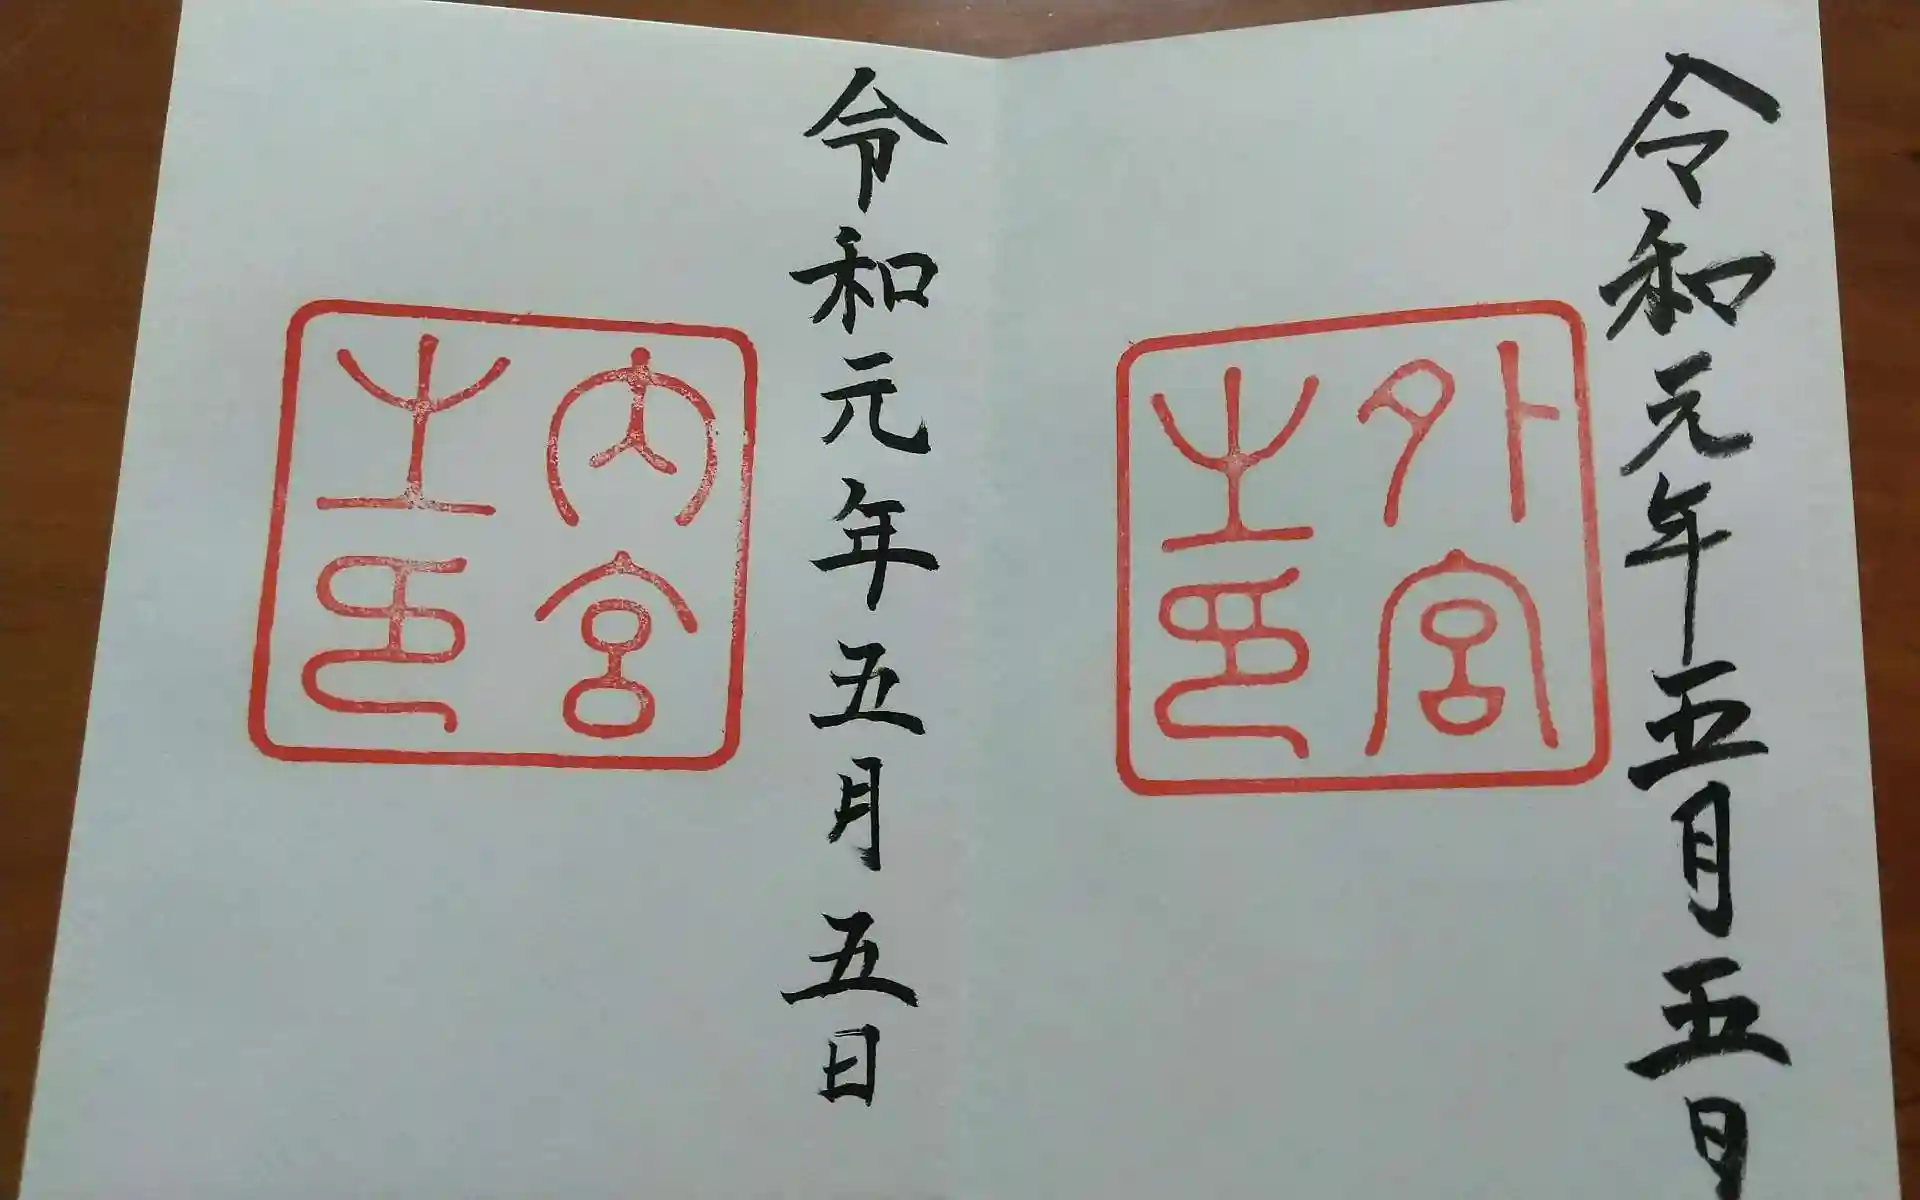 令和元年五月五日
外宮
之印
令和元年五月五日
内宮
之印